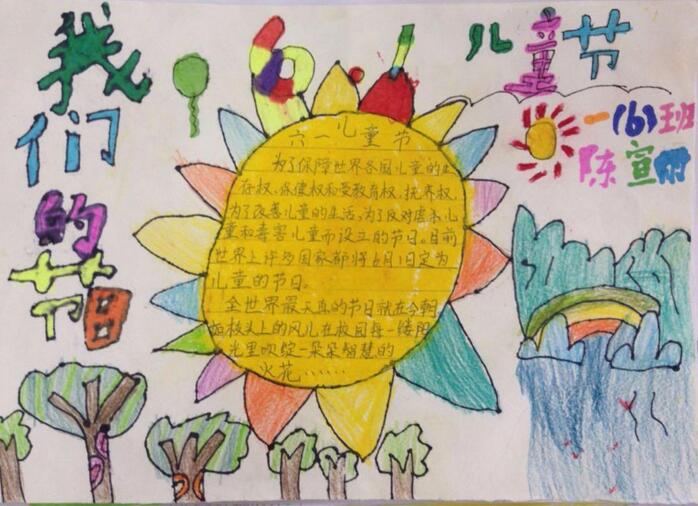 我们的节日
6.1
儿童节
一(6)班
陈宣丽
六一儿童节
为了保障世界各国儿童的生
存权、保健权和受教育权、抚养权,
为了改善儿童的生活,为了反对虐杀儿
童和毒害儿童而设立的节日。目前
世界上许多国家都将6月1日定为
儿童的节日。
全世界最天真的节日就在今朝
如枝头上的风儿在校园每一缕阳
光里吹绽一朵朵智慧的
火花……